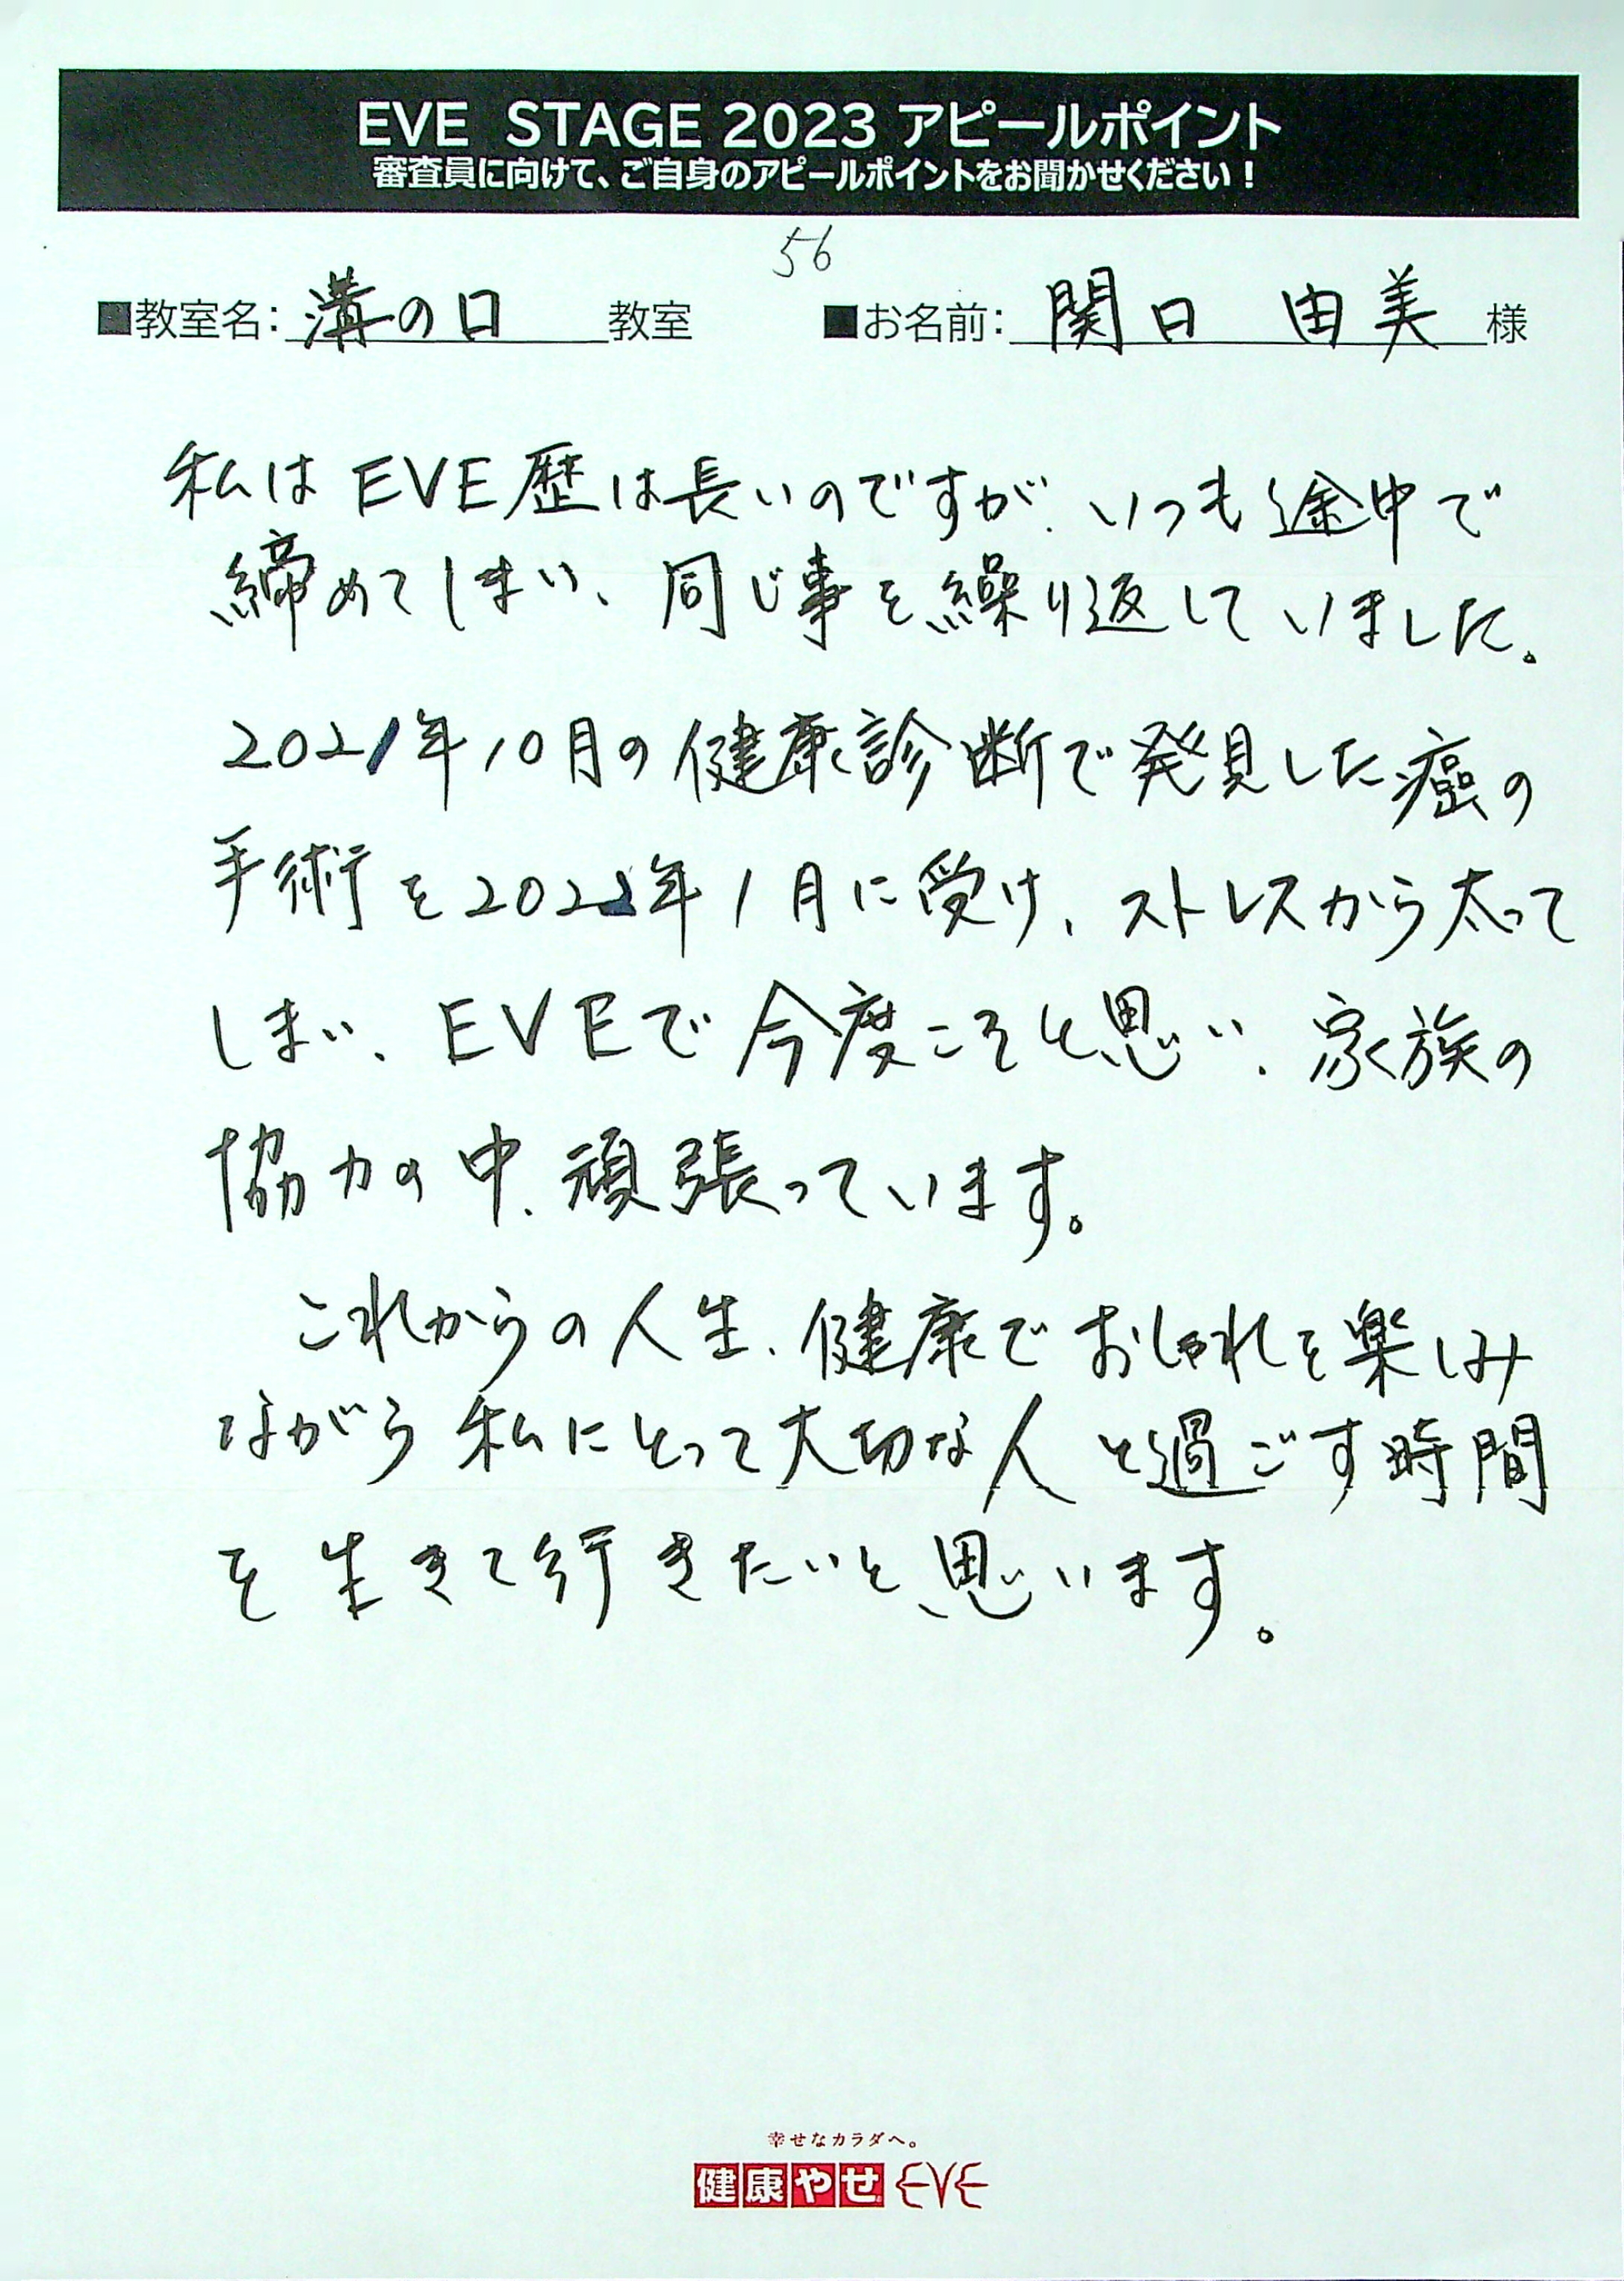 EVE STAGE 2023 アピールポイント
審査員に向けて、ご自身のアピールポイントをお聞かせください！
56
■教室名：溝の口教室 ■お名前：関口 由美様
私はEVE歴は長いのですが、いつも途中で
締めてしまい、同じ事を繰り返していました。
2021年10月の健康診断で発見した癌の
手術を2022年1月に受け、ストレスから太って
しまい、EVEで今度こそと思い、家族の
協力の中、頑張っています。
これからの人生、健康でおしゃれを楽しみ
ながら私にとって大切な人と過ごす時間
を生きて行きたいと思います。
幸せなカラダへ。
健康やせ EVE